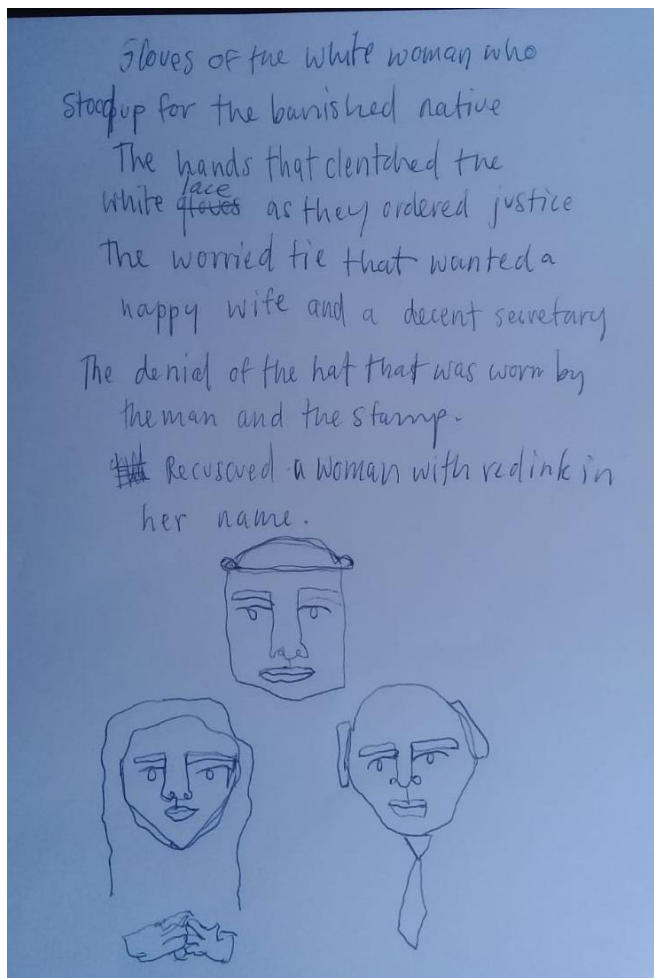 Gloves of the white woman who
stood up for the banished native
The hands that clentched the
white lace as they ordered justice
The worried tie that wanted a
happy wife and a decent secretary
The denial of the hat that was worn by
the man and the stamp.
Recuscued a woman with red ink in
her name.